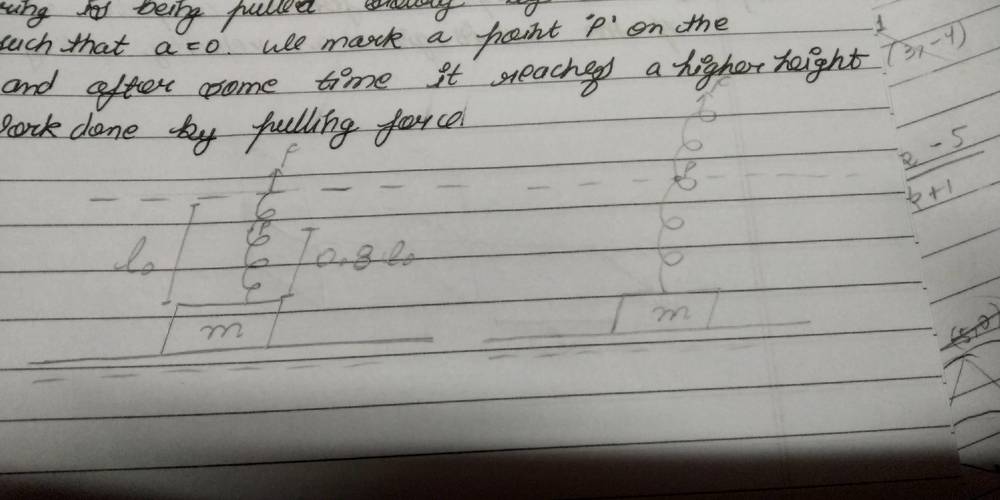 being pulled
such that a=0. we mark a point 'P' on the
and after some time it reaches a higher height
work done by pulling force.
F
l₀
0.8 l₀
m
m
(3, -4)
- 5
k+1